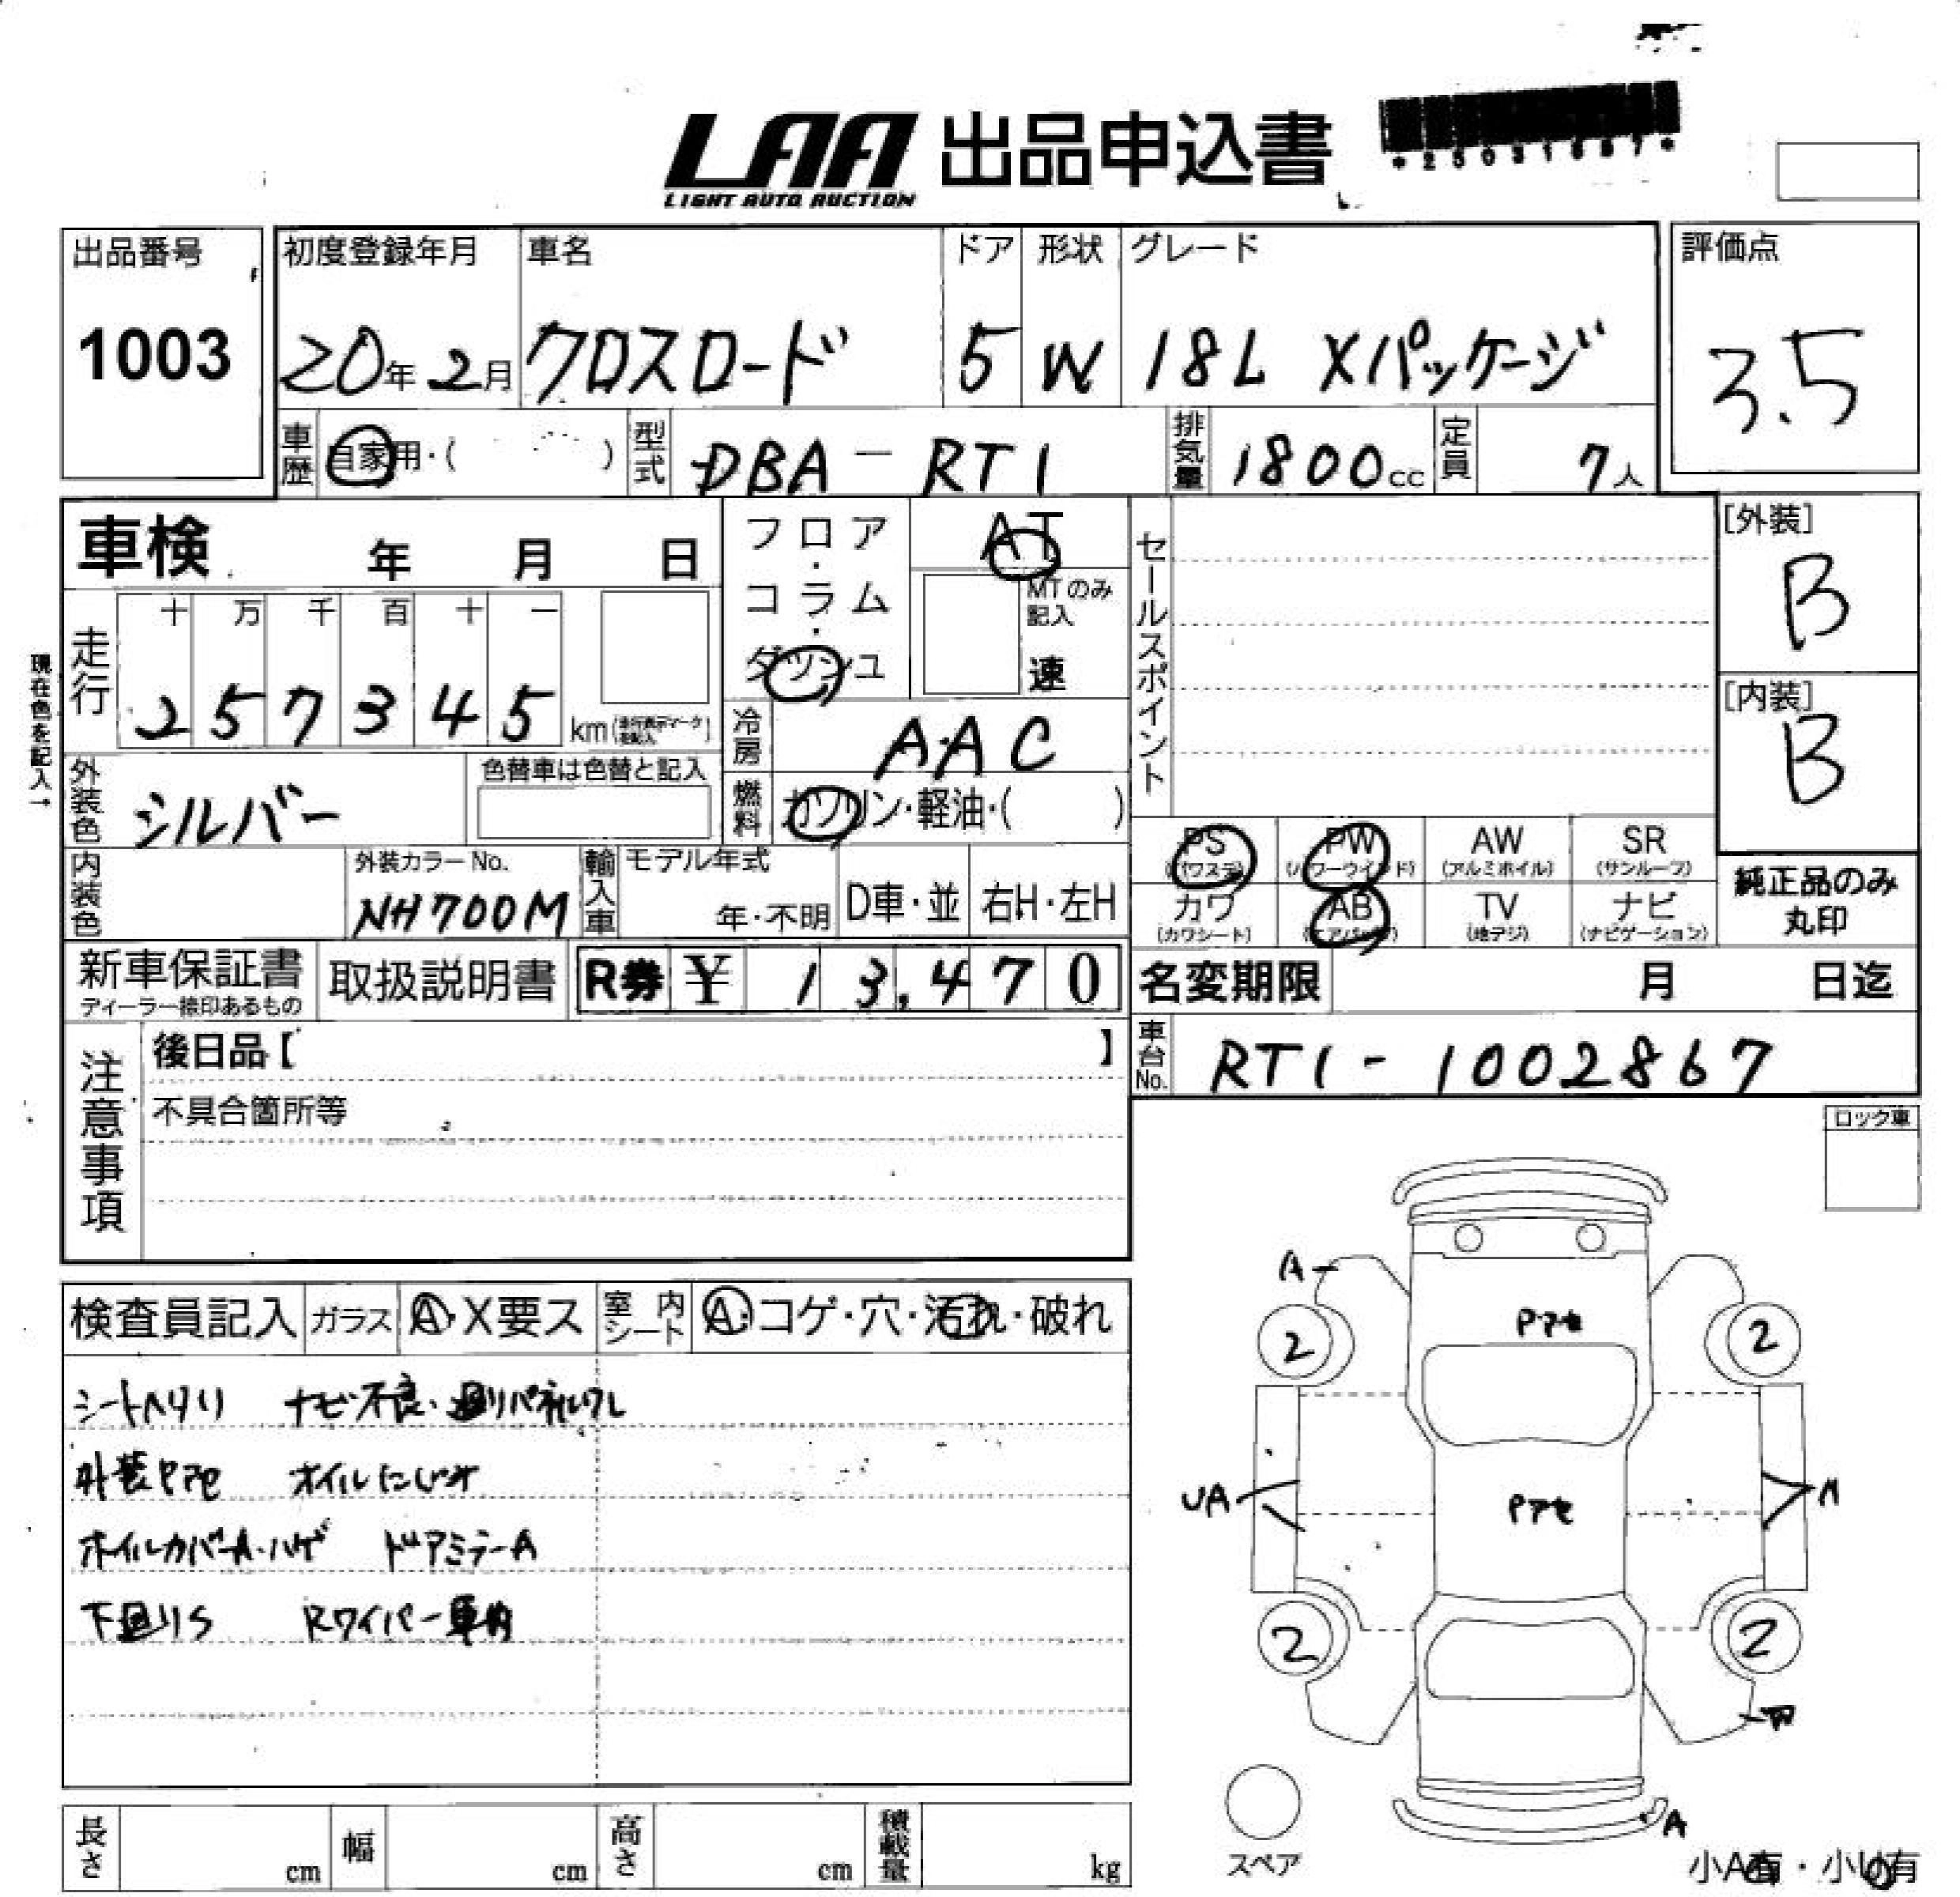 LAA 出品申込書
LIGHT AUTO AUCTION
出品番号 初度登録年月 車名 ドア 形状 グレード 評価点
1003 20年2月 クロスロード 5 W 18L Xパッケージ 3.5
車歴 自家用・( ) 型式 DBA-RT1 排気量 1800cc 定員 7人
車検 年 月 日
フロア・コラム・ダッシュ
AT
MTのみ記入
速
セールスポイント
[外装]
B
[内装]
B
現在色を記入→
走行
十 万 千 百 十 一
2 5 7 3 4 5 km
冷房 AAC
外装色 シルバー
色替車は色替と記入
燃料 ガソリン・軽油・( )
内装色
外装カラーNo.
NH700M
輸入車 モデル年式
年・不明 D車・並 右H・左H
PS PW AW SR
(パワステ) (パワーウインド) (アルミホイル) (サンルーフ)
カワ AB TV ナビ
(カワシート) (エアバッグ) (地デジ) (ナビゲーション)
純正品のみ
丸印
新車保証書 取扱説明書 R券 ¥ 13,470
ディーラー捺印あるもの
名変期限 月 日迄
車台No. RT1-1002867
注意事項
後日品【 】
不具合箇所等
ロック車
検査員記入 ガラス A・X要ス 室内シート A・コゲ・穴・汚れ・破れ
シートヘタリ ナビ不良
外装Pアセ オイルにじみ
ホイルカバーA・ハゲ ドアミラーA
下回りS Rワイパー
A
Pアセ
2 2
UA
Pアセ
2 2
A
スペア
小A有・小U有
長さ cm 幅 cm 高さ cm 積載量 kg